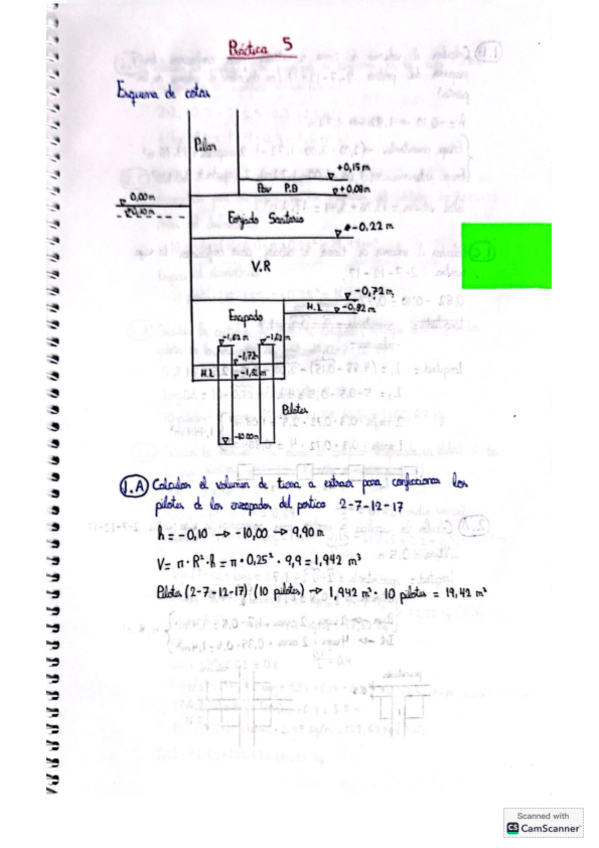 Práctica 5
Esquema de cotas
Pilar
+0,15 m
Pav P.B
+0,08m
0,00m
-0,10m
Forjado Sanitario
-0,22 m
V.R
-0,72 m
H.L
-0,82 m
Encepado
-1,62 m
-1,62 m
-1,72
H.L
Pilotes
-10.00m
1.A) Calcular el volumen de tierra a extraer para confeccionar los
pilotes de los encepados del portico 2-7-12-17
h = -0,10 → -10,00 → 9,90 m
V = π · R² · h = π · 0,25² · 9,9 = 1,942 m³
Pilotes (2-7-12-17) (10 pilotes) → 1,942 m³ · 10 pilotes = 19,42 m³
Scanned with
CS CamScanner